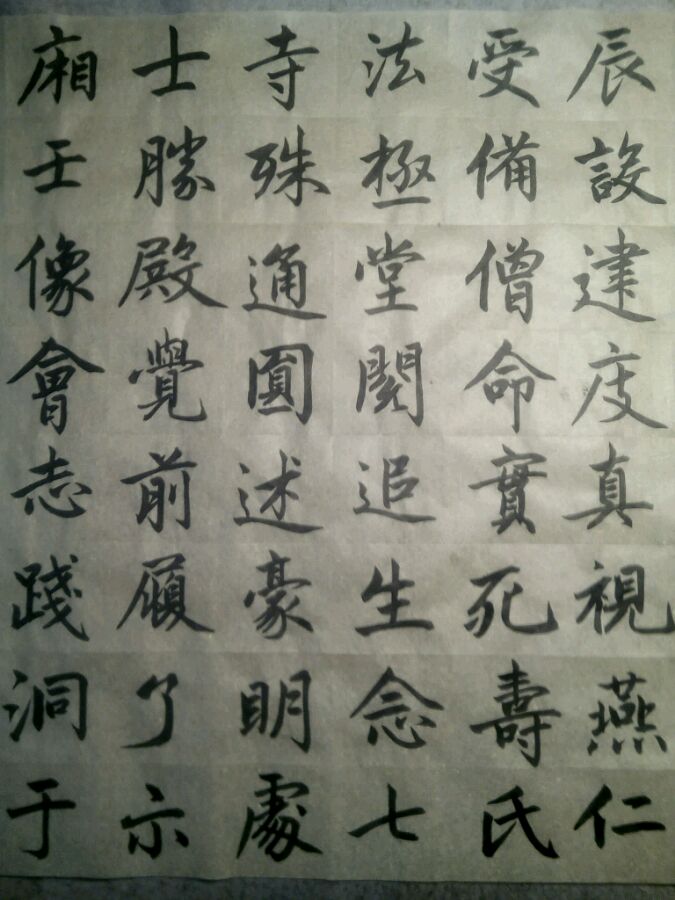 辰設建度真視燕仁
受備僧命實死壽氏
法極堂追生念七
寺殊通圓述豪明處
士勝殿覺前了示
廂壬像會志踐洞于